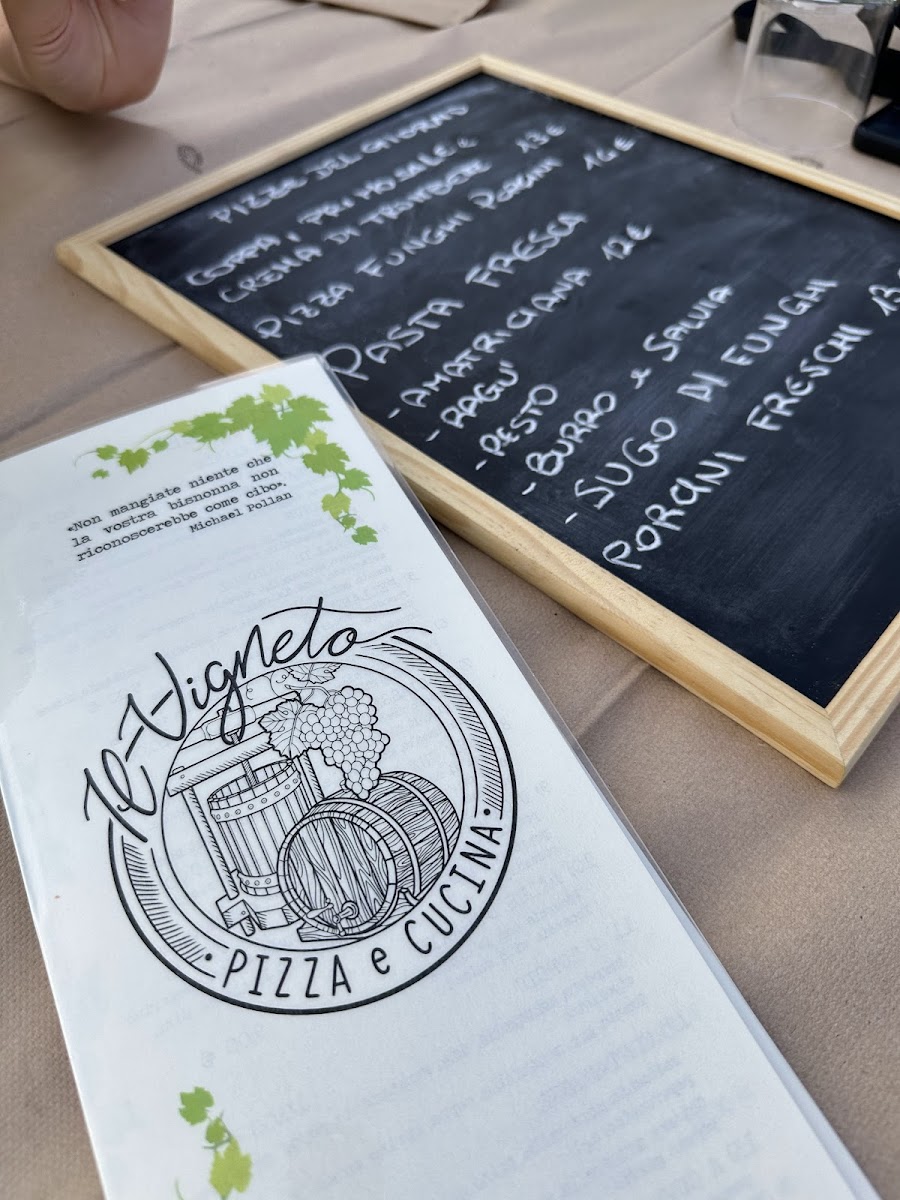 PIZZA DEL GIORNO
COPPA, PRIMOSALE e
CREMA DI TROPEA 13€
PIZZA FUNGHI PORCINI 16€
PASTA FRESCA
- AMATRICIANA 12€
- RAGU'
- PESTO
- BURRO e SALVIA
- SUGO DI FUNGHI
PORCINI FRESCHI
«Non mangiate niente che
la vostra bisnonna non
riconoscerebbe come cibo».
Michael Pollan
Il Vigneto
• PIZZA e CUCINA •